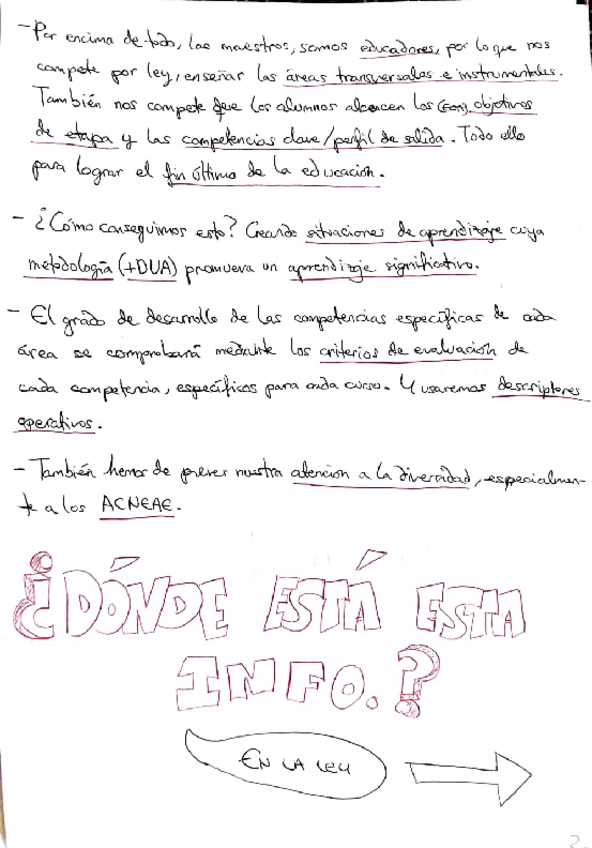 - Por encima de todo, los maestros, somos educadores, por lo que nos
compete por ley, enseñar las áreas transversales e instrumentales.
También nos compete que los alumnos alcancen los objetivos
de etapa y las competencias clave/perfil de salida. Todo ello
para lograr el fin último de la educación.
- ¿Cómo conseguimos esto? Creando situaciones de aprendizaje cuya
metodología (+DUA) promueva un aprendizaje significativo.
- El grado de desarrollo de las competencias específicas de cada
área se comprobará mediante los criterios de evaluación de
cada competencia, específicos para cada curso. Y usaremos descriptores
operativos.
- También hemos de prever nuestra atención a la diversidad, especialmen-
te a los ACNEAE.
¿DÓNDE ESTÁ ESTA
INFO.?
EN LA LEY
2.